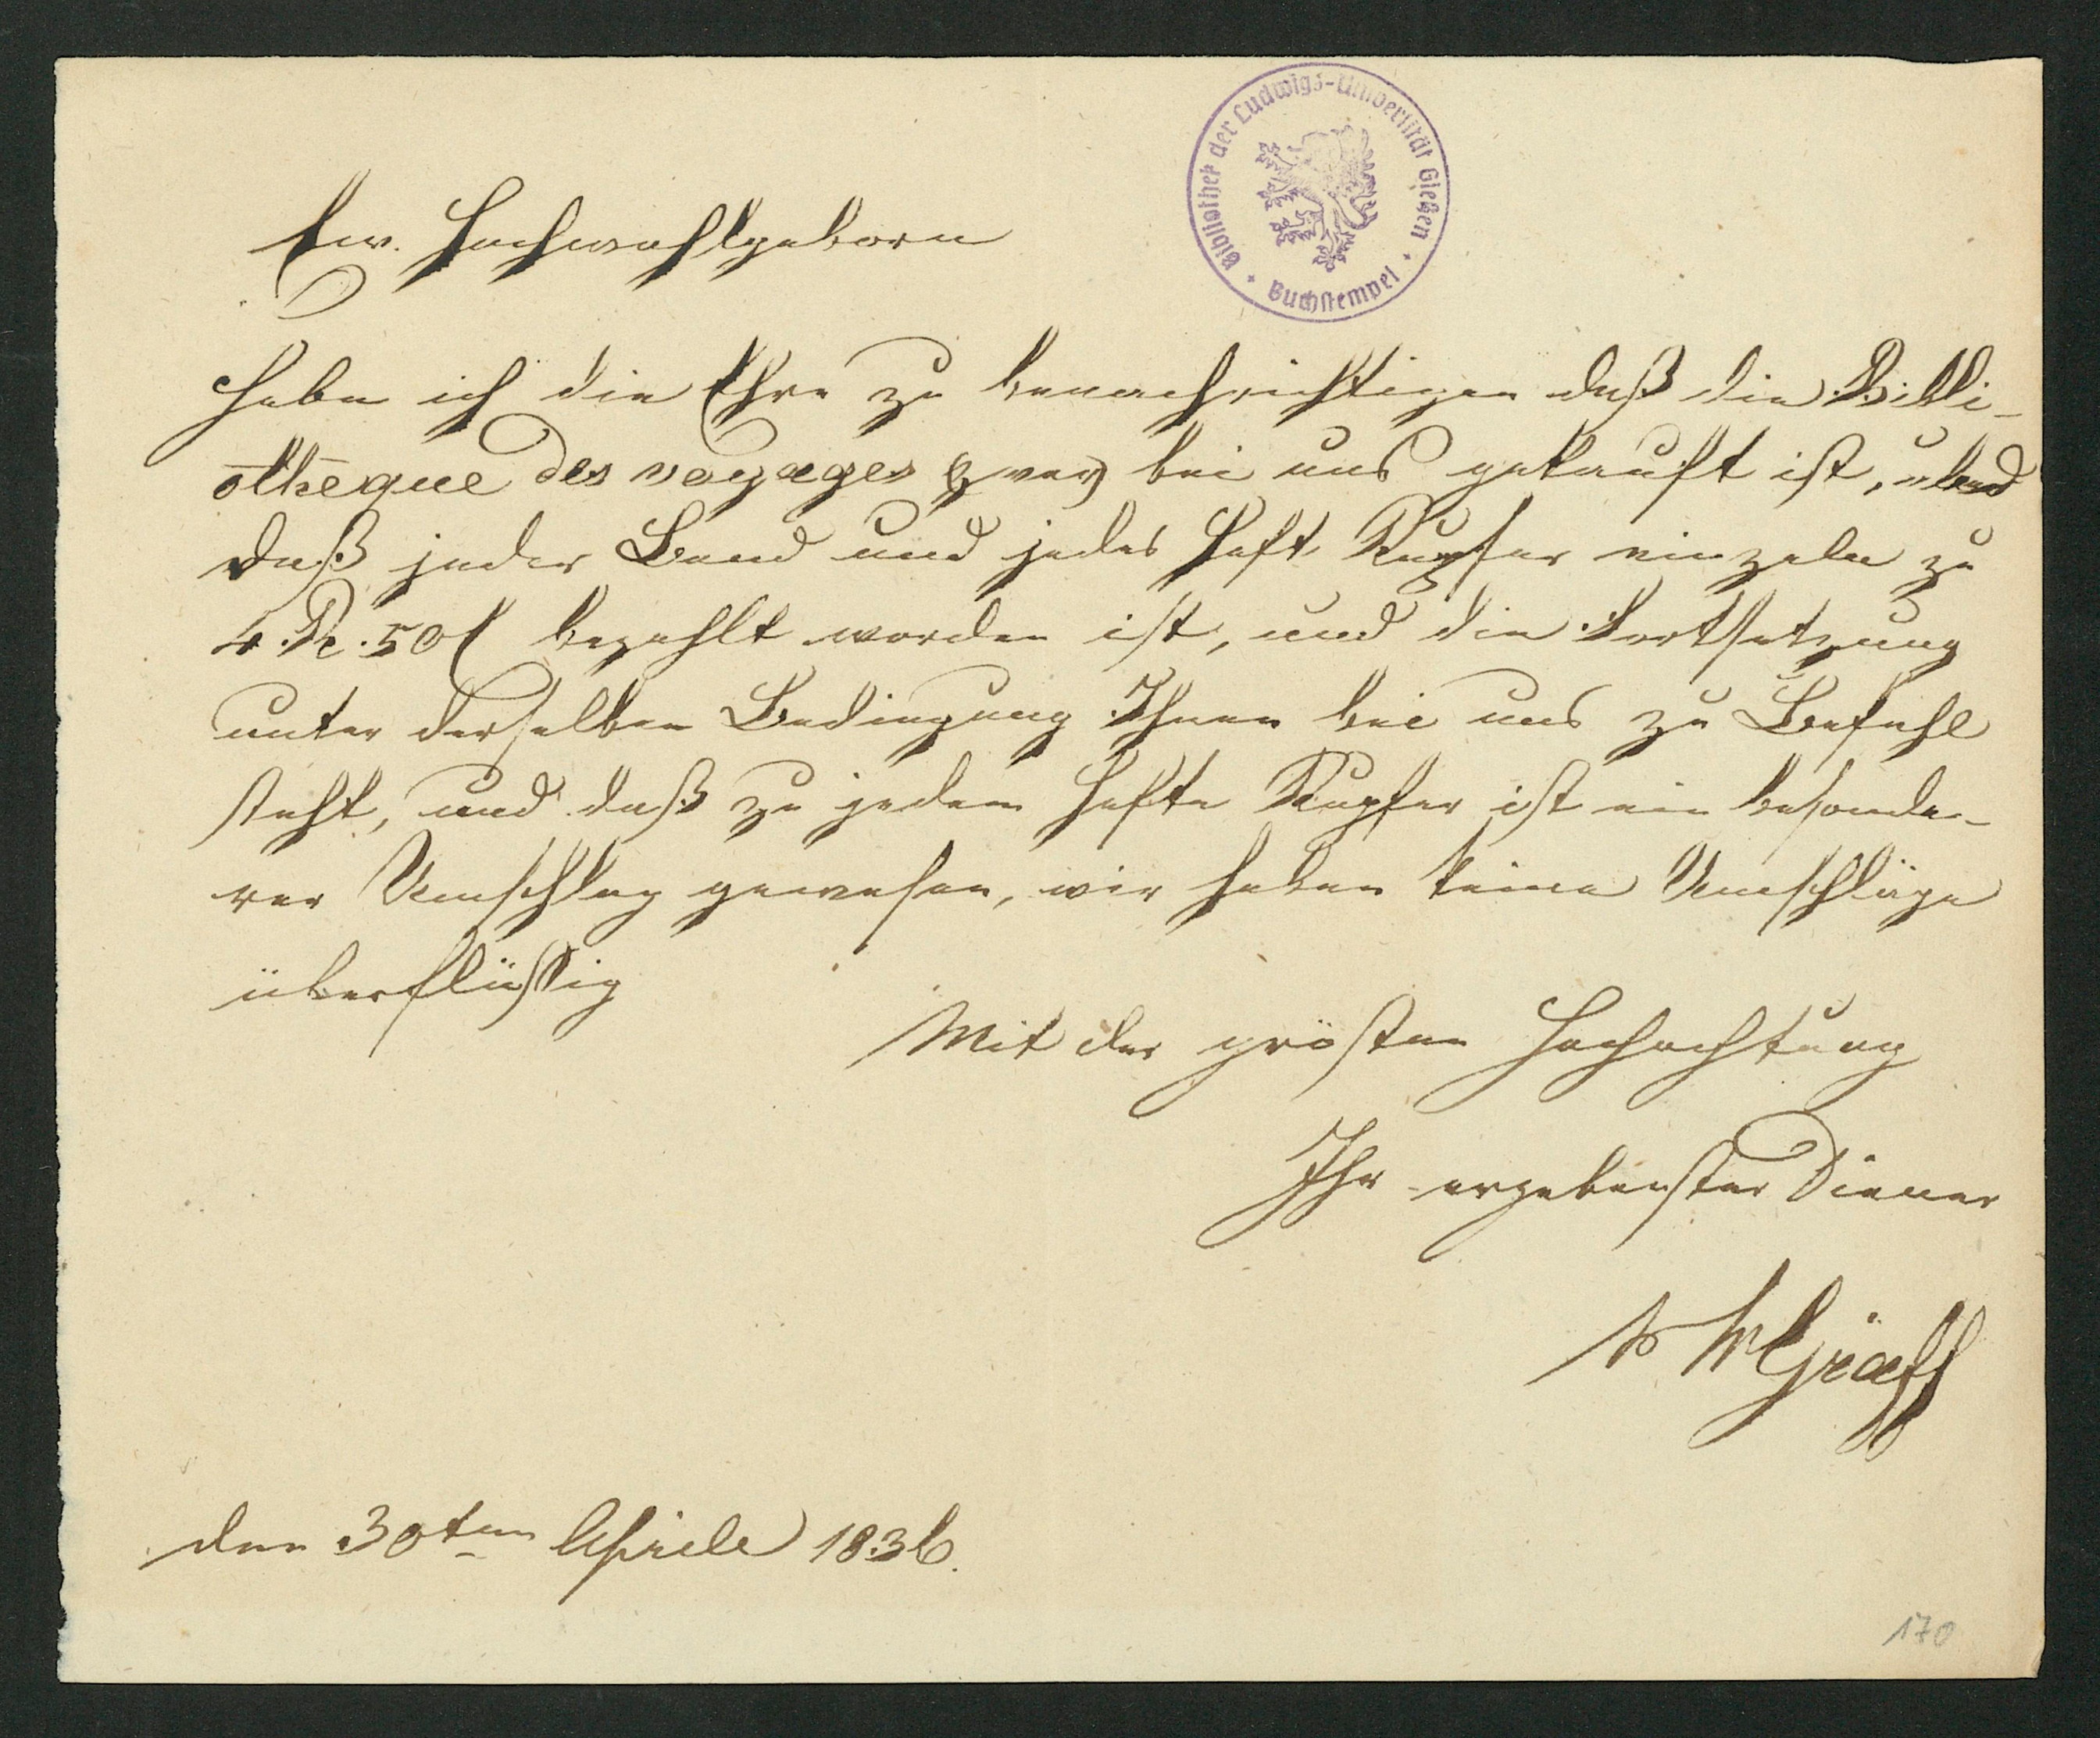 Bibliothek der Ludwigs-Universität Gießen
Buchstempel
Ew. Hochwohlgeborn
habe ich die Ehre zu benachrichtigen daß die Bibli-
otheque des voyages zwar bei uns gekauft ist, und
daß jeder Band und jedes Heft Kupfer einzeln zu
4 R. 50 bezahlt worden ist, und die Fortsetzung
unter derselben Bedingung Ihnen bei uns zu Befehl
steht, und daß zu jedem Hefte Kupfer ist ein besonde-
rer Umschlag gewesen, wir haben keine Umschläge
überflüßig
Mit der grösten Hochachtung
Ihr ergebenster Diener
W Gräff
den 30ten Aprile 1836.
170